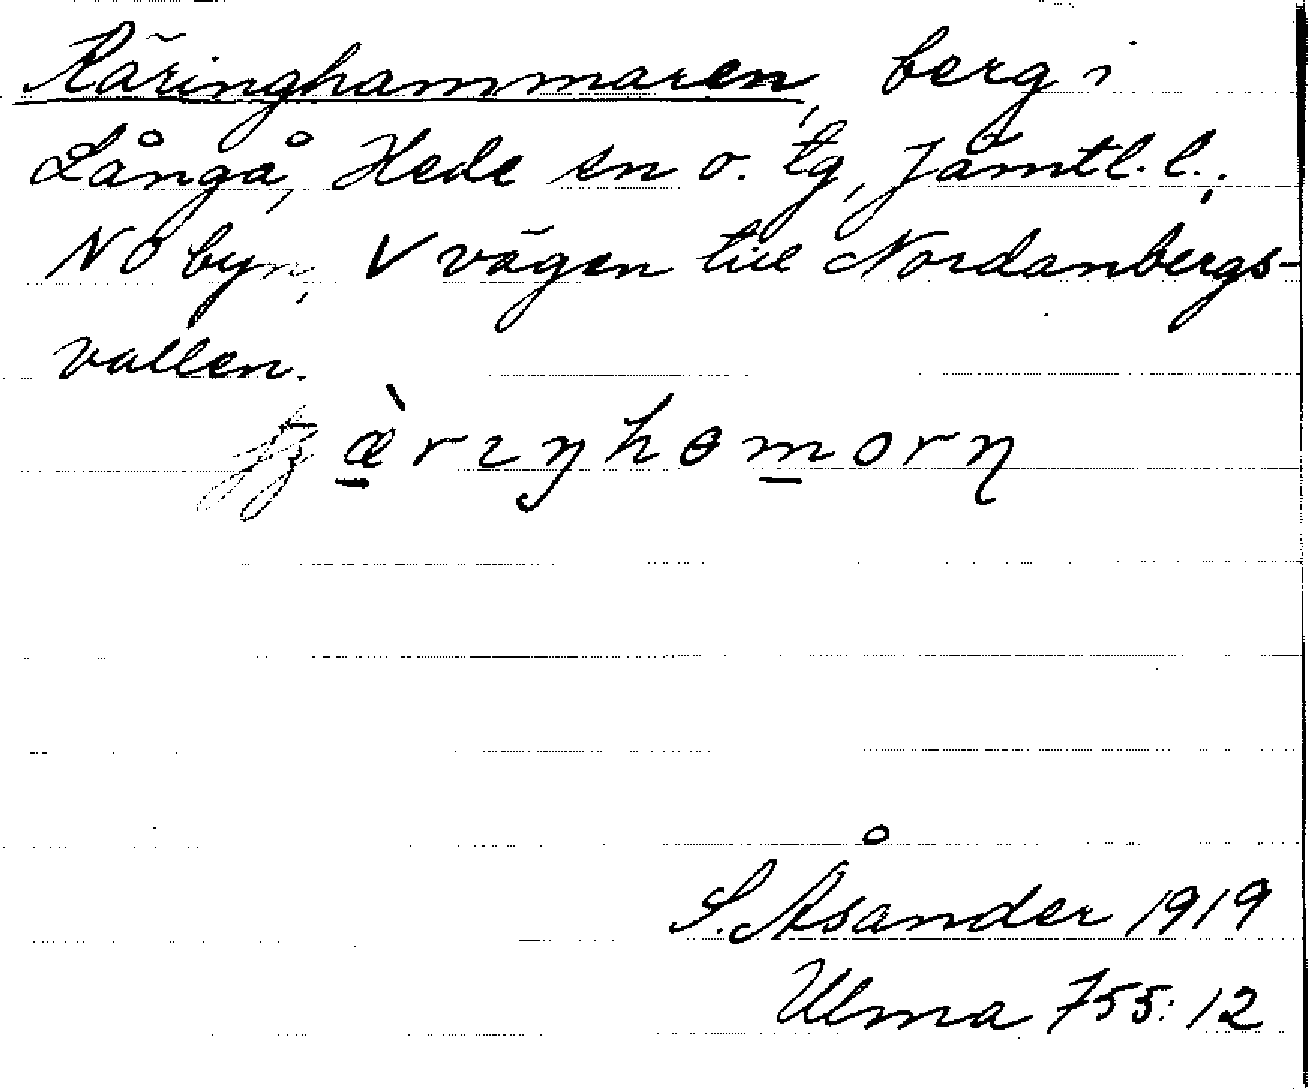 Käringhammaren, berg i
Långå, Hede sn o. tg, Jämtl. l.;
NO byn, V vägen till Nordanbergs-
vallen.
S. Åsander 1919
Ulma 755:12